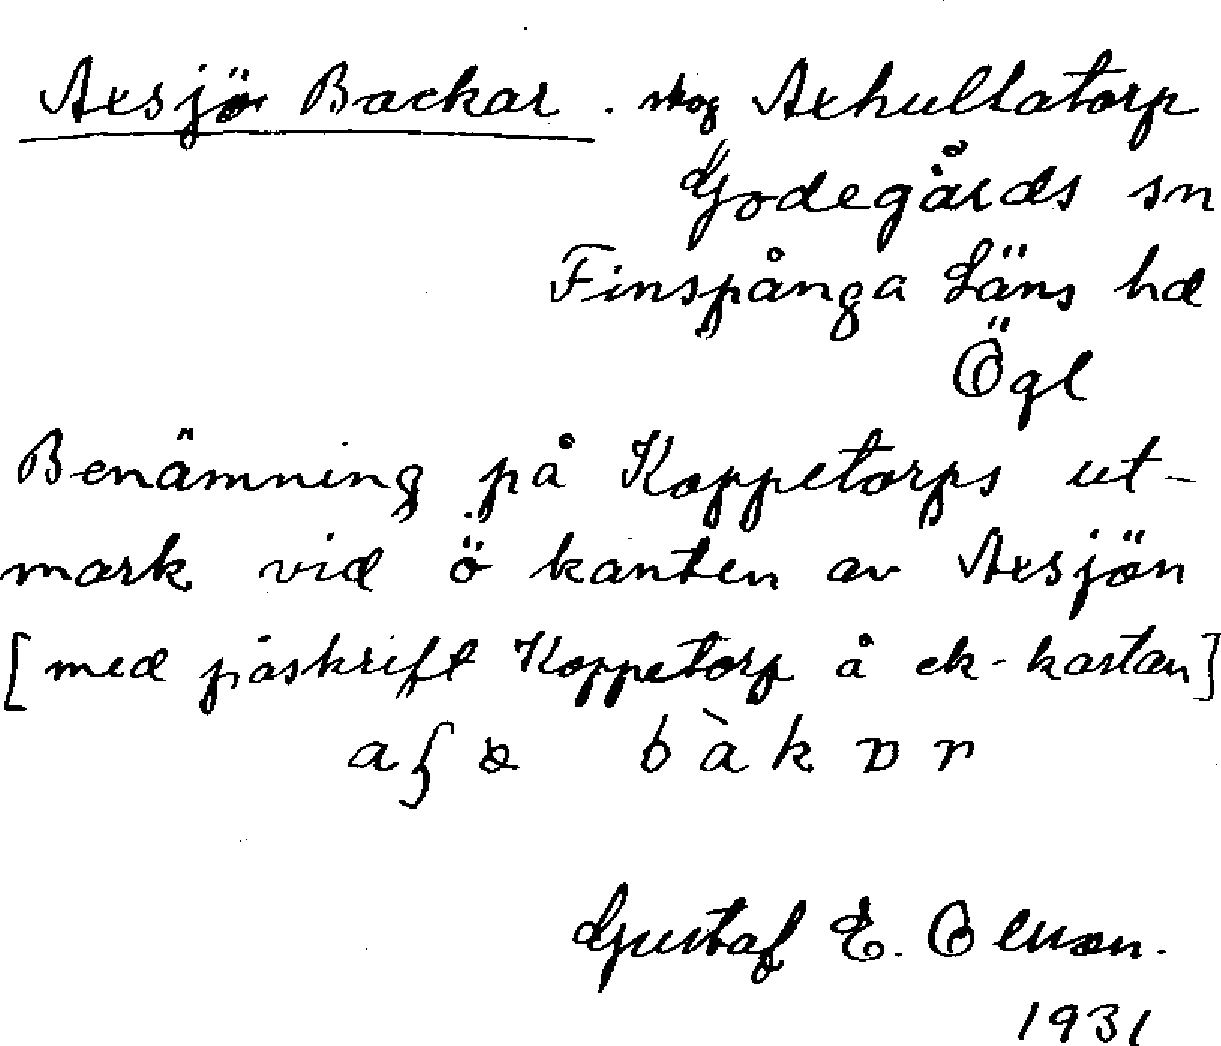 Axsjö Backar. skog Axhultatorp
Godegårds sn
Finspånga Läns hd
Ögl
Benämning på Koppetorps ut-
mark vid ö kanten av Axsjön
[med påskrift Koppetorp å ek-kartan]
bàkɒr
Gustaf E. Olsson.
1931